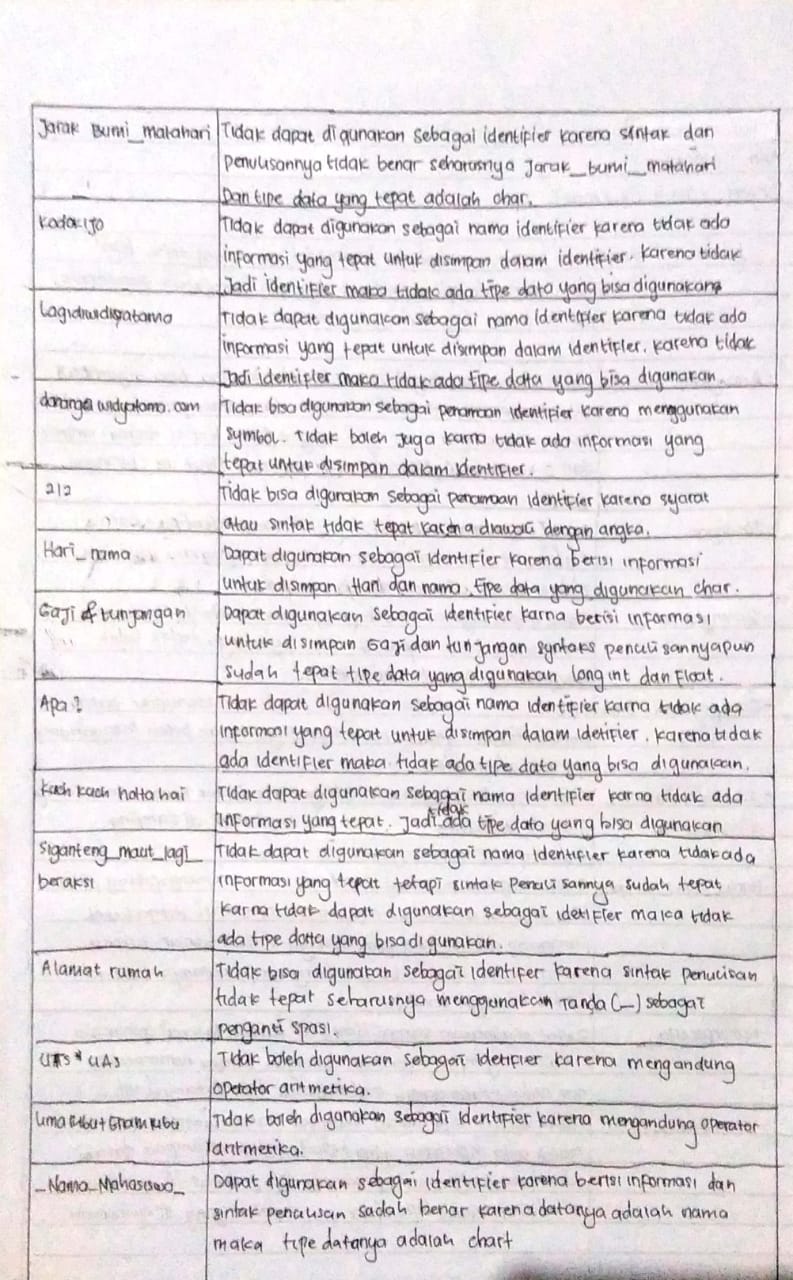 Jarak Bumi_matahari
Tidak dapat digunakan sebagai identifier karena sintak dan
penulisannya tidak benar seharusnya Jarak_bumi_matahari
Dan tipe data yang tepat adalah char.
Kodok Ijo
Tidak dapat digunakan sebagai nama identifier karena tidak ada
informasi yang tepat untuk disimpan dalam identifier. karena tidak
Jadi identifier maka tidak ada tipe data yang bisa digunakan
Tidak dapat digunakan sebagai nama identifier karena tidak ada
informasi yang tepat untuk disimpan dalam identifier. karena tidak
Jadi identifier maka tidak ada tipe data yang bisa digunakan.
widyatama.com
Tidak bisa digunakan sebagai penamaan identifier karena menggunakan
symbol. Tidak boleh juga karna tidak ada informasi yang
tepat untuk disimpan dalam identifier.
212
Tidak bisa digunakan sebagai penamaan identifier karena syarat
atau sintak tidak tepat karena diawali dengan angka.
Hari_nama
Dapat digunakan sebagai identifier karena berisi informasi
untuk disimpan Hari dan nama. tipe data yang digunakan char.
Gaji & tunjangan
Dapat digunakan sebagai identifier karna berisi informasi
untuk disimpan Gaji dan tunjangan syntaks penulisannyapun
sudah tepat tipe data yang digunakan long int dan Float.
Apa?
Tidak dapat digunakan sebagai nama identifier karna tidak ada
informasi yang tepat untuk disimpan dalam idetifier. karena tidak
ada identifier maka tidak ada tipe data yang bisa digunakan.
kuch kuch hotta hai
Tidak dapat digunakan sebagai nama identifier karna tidak ada
informasi yang tepat. Jadi tidak ada tipe data yang bisa digunakan
Siganteng_maut_lagi_
beraksi
Tidak dapat digunakan sebagai nama identifier karena tidak ada
informasi yang tepat tetapi sintak penulisannya sudah tepat
karna tidak dapat digunakan sebagai idetifier maka tidak
ada tipe data yang bisa digunakan.
Alamat rumah
Tidak bisa digunakan sebagai identifer karena sintak penulisan
tidak tepat seharusnya menggunakan Tanda (_) sebagai
penganti spasi.
UTS * UAS
Tidak boleh digunakan sebagai idetifier karena mengandung
operator aritmetika.
lima Ribu+Enam Ribu
Tidak boleh digunakan sebagai identifier karena mengandung operator
aritmetika.
_Nama_Mahasiswa_
Dapat digunakan sebagai identifier karena berisi informasi dan
sintak penulisan sudah benar karena datanya adalah nama
maka tipe datanya adalah chart